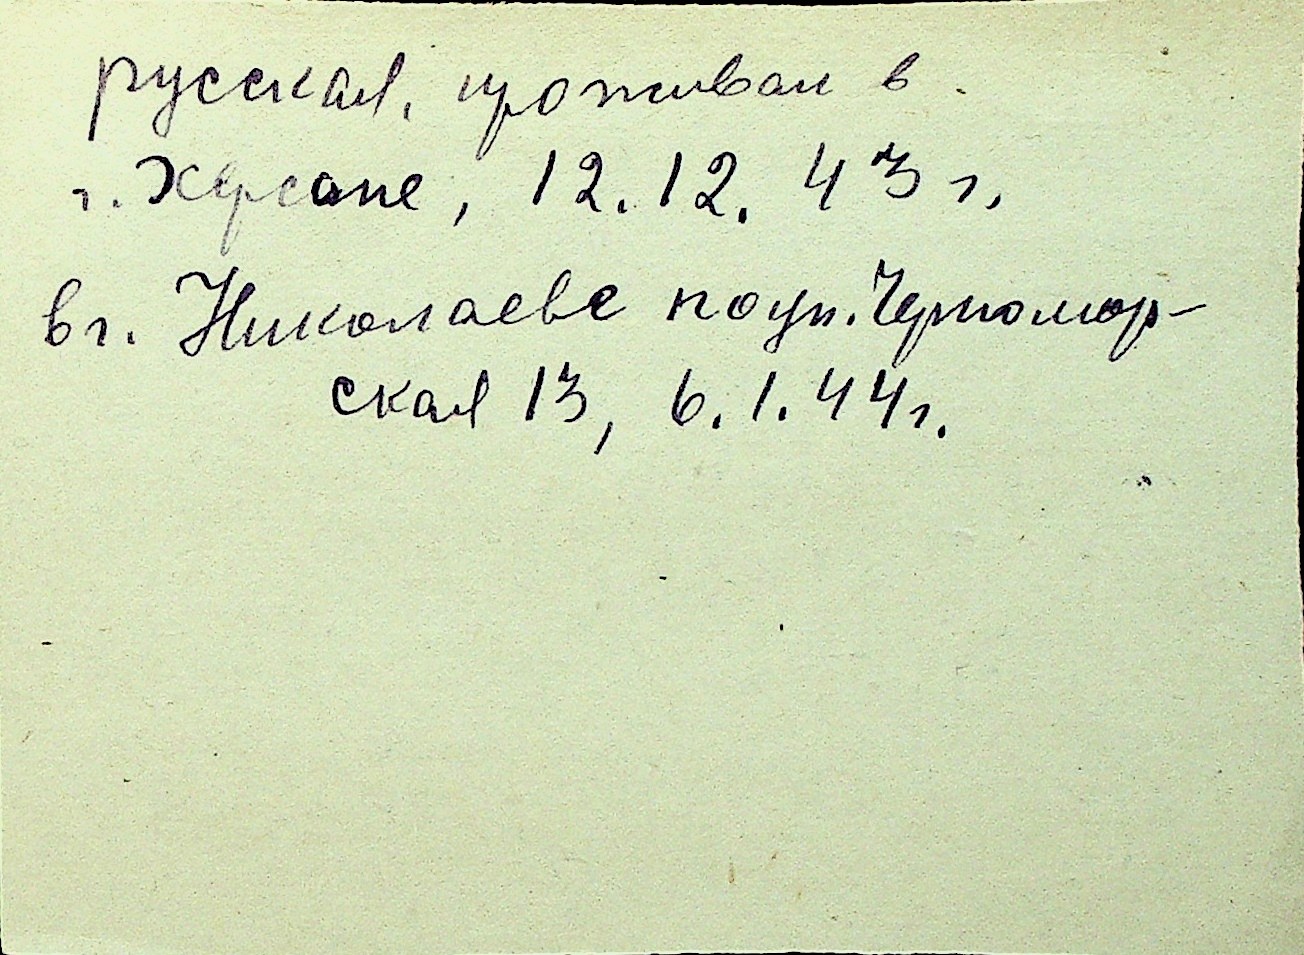 русская, проживал в
г. Херсоне, 12.12.43 г.
в г. Николаеве по ул. Черномор-
ская 13, 6.1.44 г.